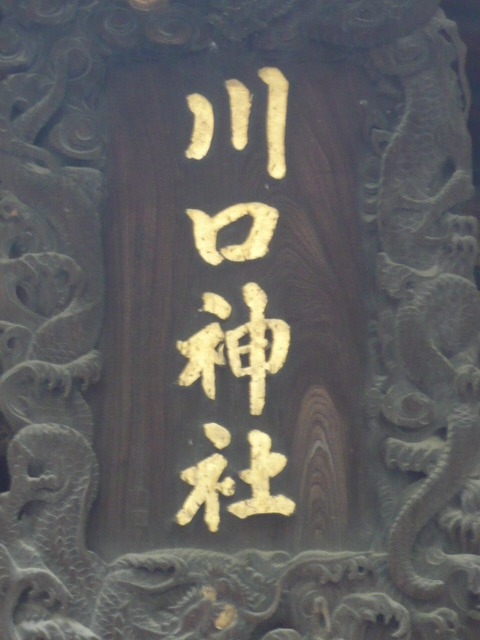 川口神社